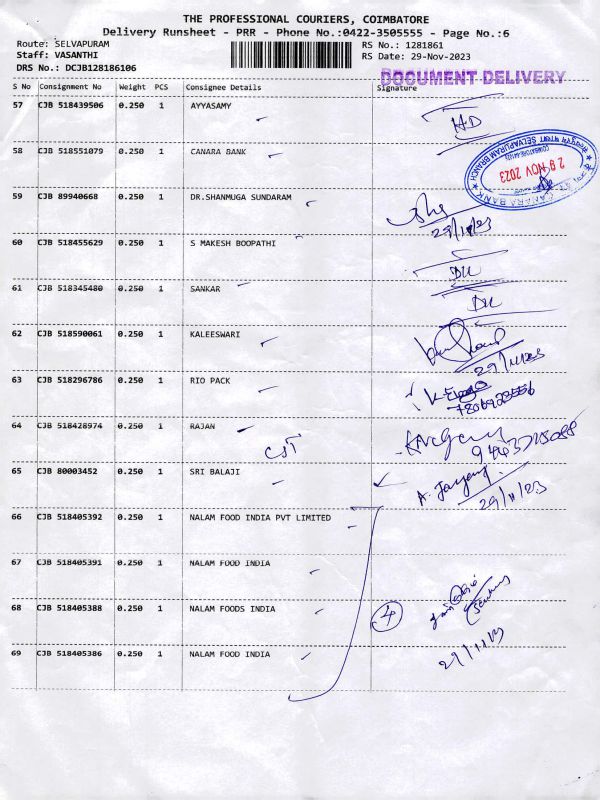 THE PROFESSIONAL COURIERS, COIMBATORE
Delivery Runsheet - PRR - Phone No.:0422-3505555 - Page No.:6
Route: SELVAPURAM
Staff: VASANTHI
DRS No.: DCJB128186106
RS No.: 1281861
RS Date: 29-Nov-2023
DOCUMENT DELIVERY
S No Consignment No Weight PCS Consignee Details Signature
57 CJB 518439506 0.250 1 AYYASAMY HD
58 CJB 518551079 0.250 1 CANARA BANK
CANARA BANK SELVAPURAM BRANCH
29 NOV 2023
59 CJB 89940668 0.250 1 DR.SHANMUGA SUNDARAM
29/11/23
60 CJB 518455629 0.250 1 S MAKESH BOOPATHI DLL
61 CJB 518345480 0.250 1 SANKAR DLL
62 CJB 518590061 0.250 1 KALEESWARI
29/11/23
63 CJB 518296786 0.250 1 RIO PACK
64 CJB 518428974 0.250 1 RAJAN
CST
65 CJB 80003452 0.250 1 SRI BALAJI
29/11/23
66 CJB 518405392 0.250 1 NALAM FOOD INDIA PVT LIMITED
67 CJB 518405391 0.250 1 NALAM FOOD INDIA
68 CJB 518405388 0.250 1 NALAM FOODS INDIA 4
69 CJB 518405386 0.250 1 NALAM FOOD INDIA